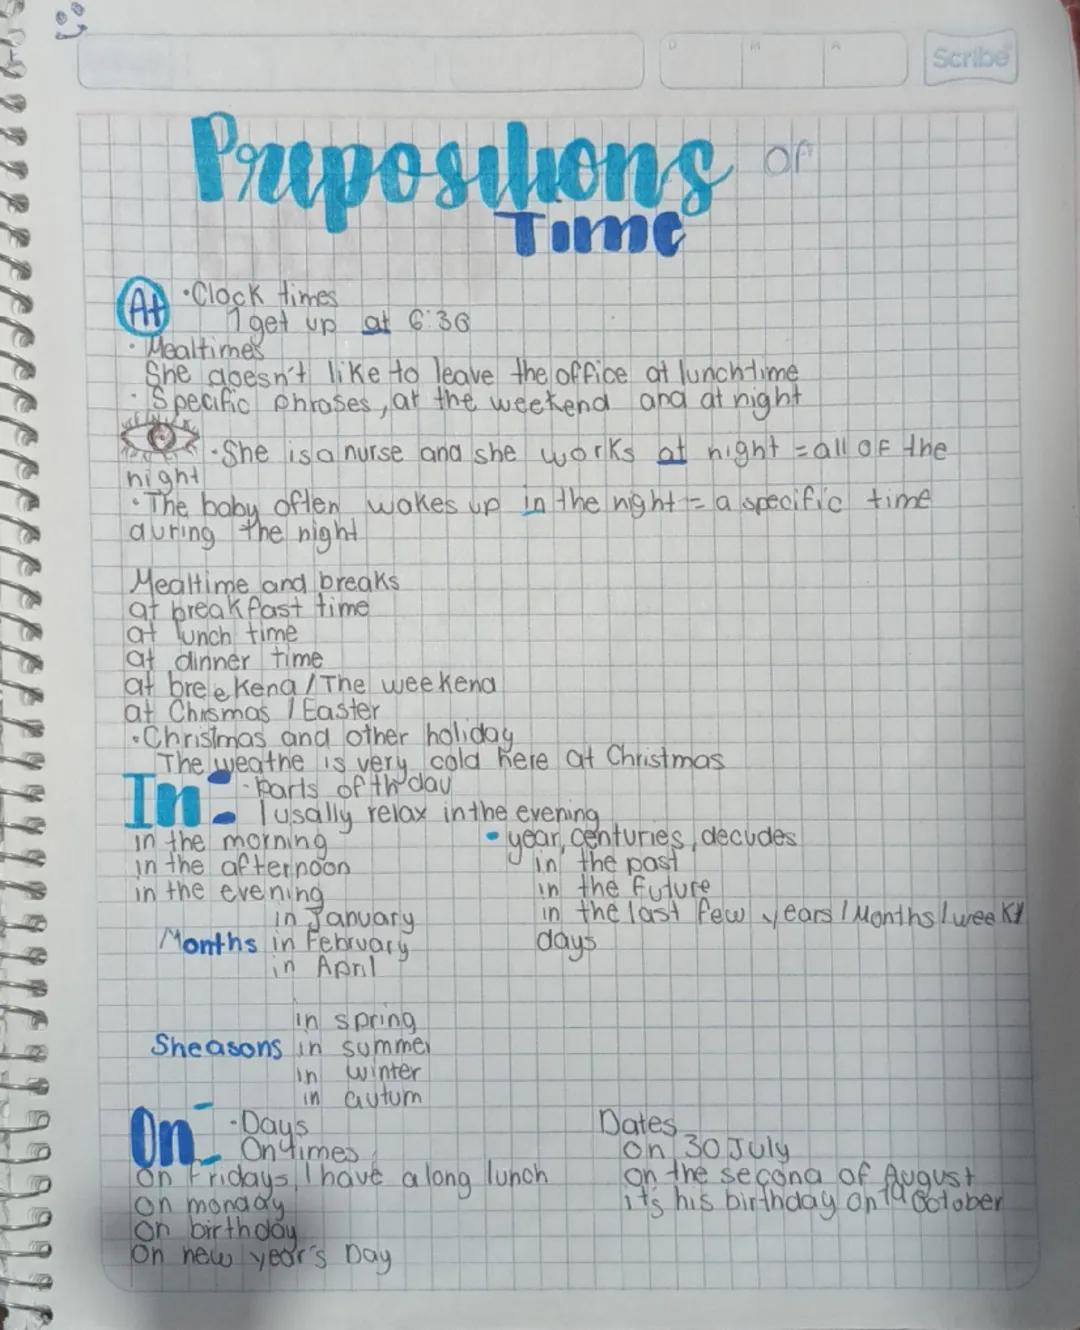 D M A
Scribe
Prepositions of
Time
At · Clock times
I get up at 6:30
· Mealtimes
She doesn't like to leave the office at lunchtime
· Specific phrases, at the weekend and at night
· She is a nurse and she works at night = all of the
night
· The baby often wakes up in the night = a specific time
during the night
Mealtime and breaks
at breakfast time
at lunch time
at dinner time
at breekend / The weekend
at Chrsmas / Easter
· Christmas and other holiday
The weathe is very cold here at Christmas
In: · Parts of th day
I usally relax in the evening
in the morning
in the afternoon
in the evening
· year, centuries, decudes
in the past
in the future
in the last few years / Months / week /
days
in January
Months in February
in April
in spring
Sheasons in summer
in winter
in autum
On - · Days
On times
on Fridays, I have a long lunch
on monday
on birthday
on new year's Day
Dates
on 30 July
on the second of August
it's his birthday on October